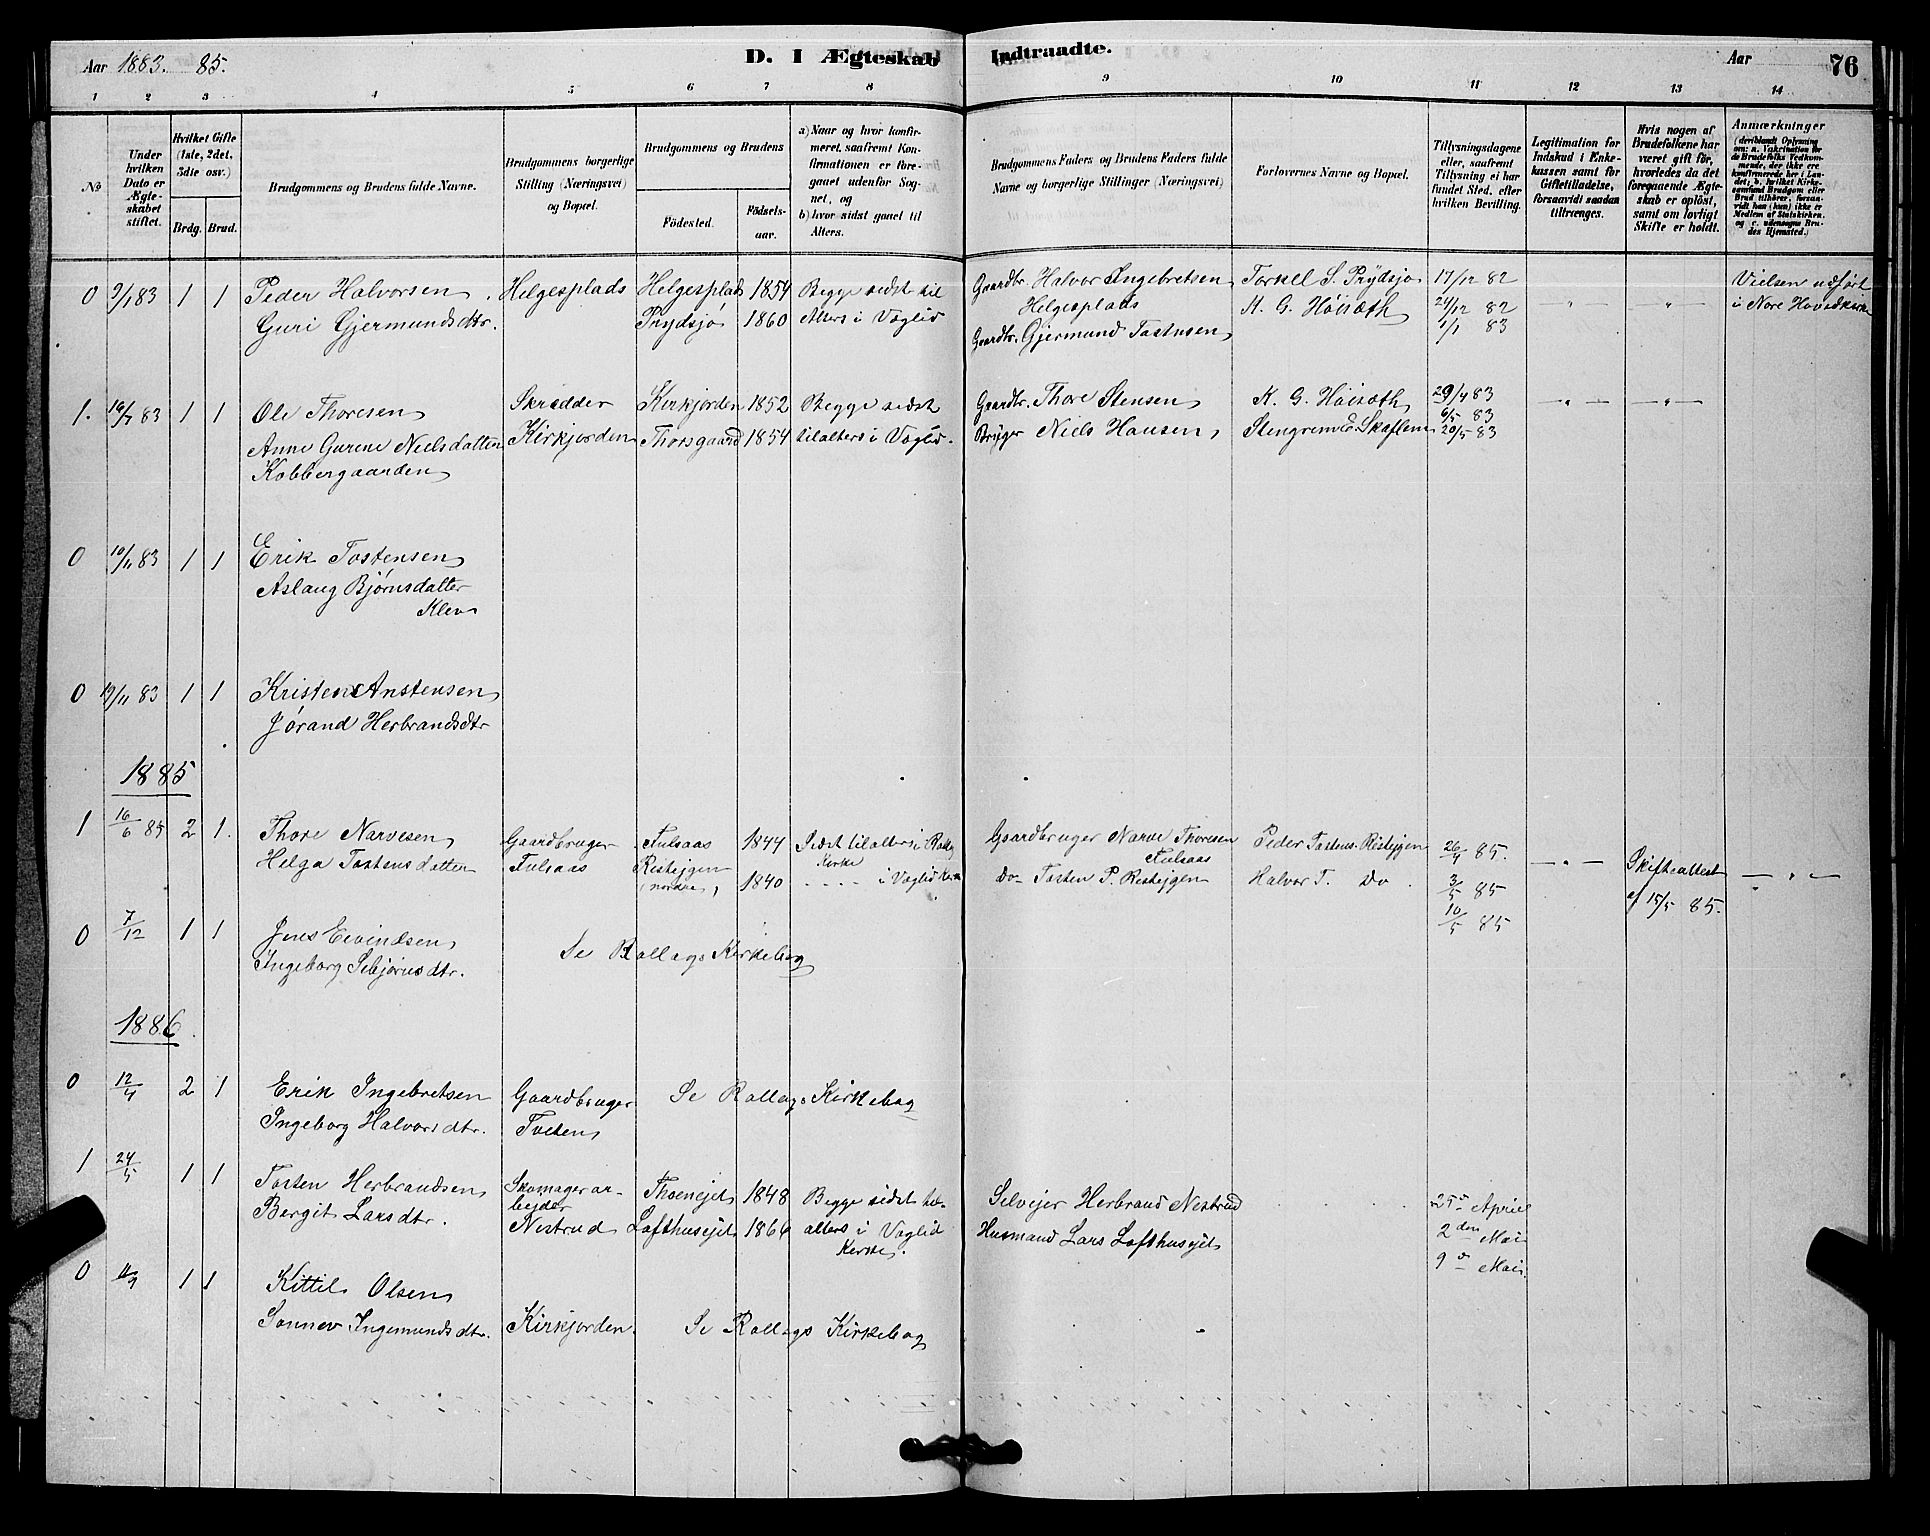 Aar 1883. 85.
D. I Ægteskab Indtraadte.
Aar 76
1 2 3 4 5 6 7 8 9 10 11 12 13 14
No
Under hvilken Dato er Ægteskabet stiftet.
Hvilket Gifte (1ste, 2det, 3die osv.)
Brdg. Brud.
Brudgommens og Brudens fulde Navne.
Brudgommens borgerlige Stilling (Næringsvei) og Bopæl.
Brudgommens og Brudens
Födested.
Födselsaar.
a) Naar og hvor konfirmeret, saafremt Konfirmationen er foregaaet udenfor Sognet, og
b) hvor sidst gaaet til Alters.
Brudgommens Faders og Brudens Faders fulde Navne og borgerlige Stillinger (Næringsvei)
Forlovernes Navne og Bopæl.
Tillysningsdagene eller, saafremt Tillysning ei har fundet Sted, efter hvilken Bevilling.
Legitimation for Indskud i Enkekassen samt for Giftetilladelse, forsaavidt saadan tiltrænges.
Hvis nogen af Brudefolkene har været gift för, hvorledes da det foregaaende Ægteskab er oplöst, samt om lovligt Skifte er holdt.
Anmærkninger (deriblandt Oplysning om: a. Vakcination for de Brudefolks Vedkommende, der ikke ere konfirmerede her i Landet; b. hvilket Kirkesamfund Brudgom eller Brud tilhörer, forsaavidt han (hun) ikke er Medlem af Statskirken, og c. udensogns Brudes Hjemsted.)
0 9/1 83 1 1 Peder Halvorsen Helgesplads Helgesplads 1854 Begge sidst til Gaardbr. Halvor Ingebretsen Torkel S. Prydsjo 17/12 82 Vielsen udført
Guri Gjermundsdtr. Prydsjo 1860 Alters i Væglid Helgesplads K. G. Höiseth 24/12 82 " " i Nore Hovedkirke
Gaardbr. Gjermund Tostensen 1/1 83
1. 16/7 83 1 1 Ole Thoresen Skrædder Kirkjorden 1852 Begge sidst Gaardbr. Thore Stensen K. G. Höiseth 29/4 83 " "
Anne Gurine Nielsdatter Kirkjorden Thorsgaard 1854 til alters i Væglid. Bryger Niels Hansen 6/5 83
Kobbergaarden 20/5 83
0 10/11 83 1 1 Erik Tostensen
Aslaug Bjørnsdatter
Klev
0 19/11 83 1 1 Kristen Anstensen
Jørand Herbrandsdtr
1885
1 16/6 85 2 1. Thore Narvesen Gaardbruger Fulsaas 1844 Sidst til alters i Rollag Gaardbruger Narve Thoresen Peder Tostens. Ristejgen 26/4 85. " Skifteattest
Kirke Fulsaas
Helga Tostensdatter Fulsaas Ristejgen 1840 - - - - i Væglid Kirke Do Tosten P. Ristejgen Halvor T. Do 3/5 85 af 15/5 85. "
(nordre) 10/5 85
0 7/12 1 1 Jens Eivindsen Se Rollags Kirkebog
Ingeborg Sebjørnsdtr.
1886.
0 12/4 2 1 Erik Ingebretsen Gaardbruger Se Rollags Kirkebog
Ingeborg Halvorsdtr. Tveten
1 24/5 1 1 Tosten Herbrandsen Skomagerar- Thoenejet 1848 Begge sidst til Selvejer Herbrand Nestrud 25de April
bejder
Bergit Larsdtr. Nestrud Lofthusejet 1866 alters i Væglid Husmand Lars Lofthusejet 2den Mai
Kirke. 9de Mai.
0 1 1 Kittil Olsen
Sonnev Ingemundsdtr. Kirkjorden. Se Rollags Kirkebog